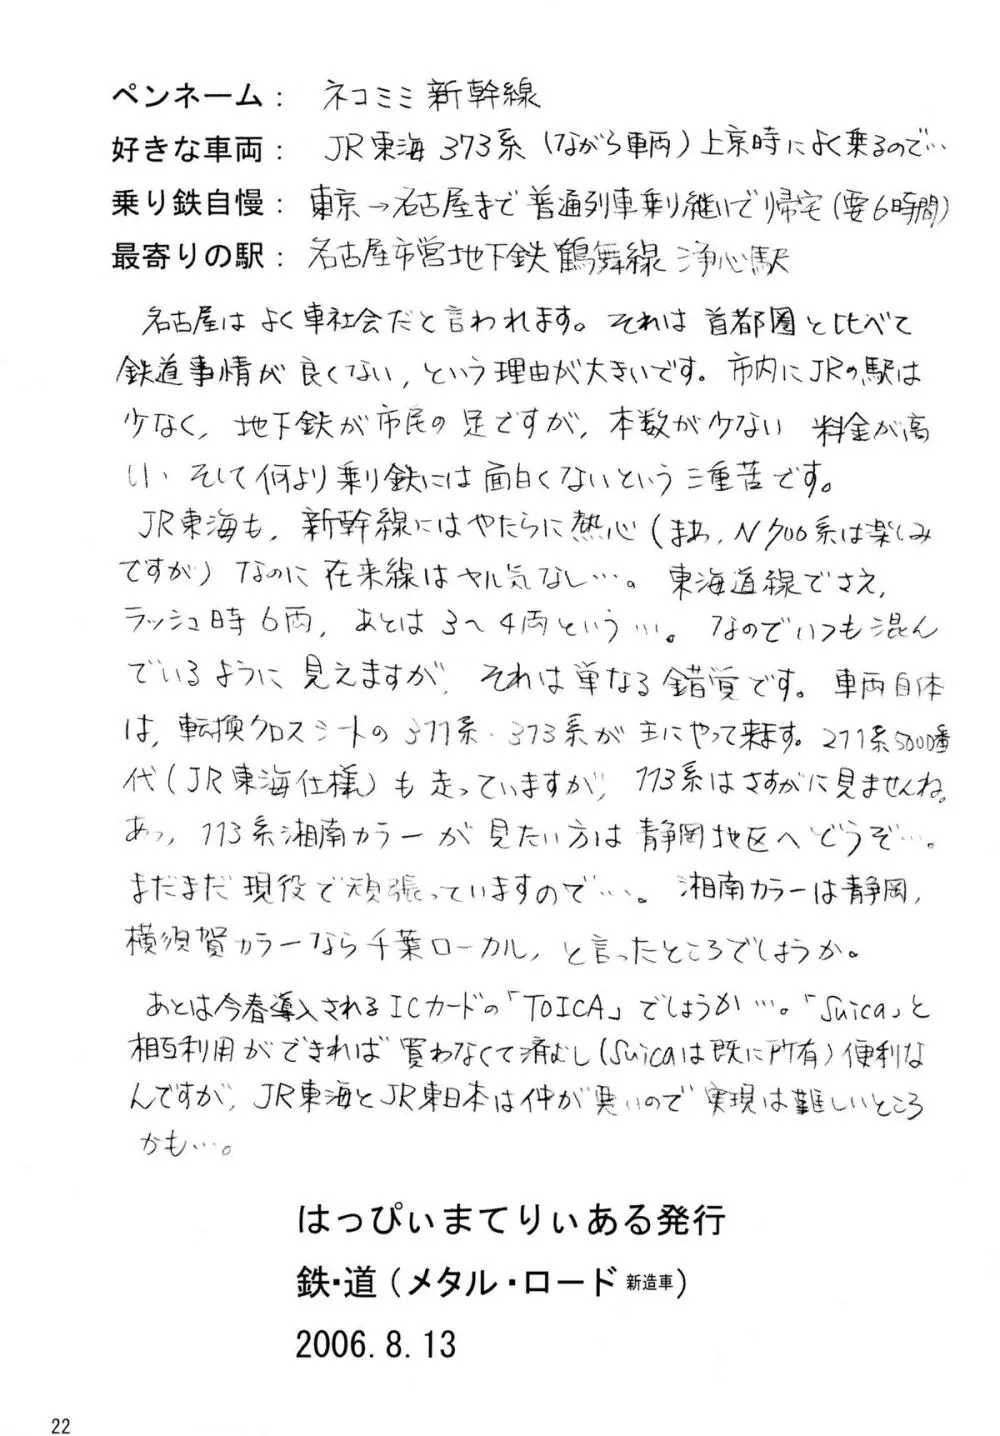 ペンネーム： ネコミミ新幹線
好きな車両： JR東海 373系（ながら車両）上京時によく乗るので…
乗り鉄自慢： 東京→名古屋まで普通列車乗り継いで帰宅（要6時間）
最寄りの駅： 名古屋市営地下鉄鶴舞線 浄心駅
名古屋はよく車社会だと言われます。それは首都圏と比べて
鉄道事情が良くない、という理由が大きいです。市内にJRの駅は
少なく、地下鉄が市民の足ですが、本数が少ない 料金が高
い・そして何より乗り鉄には面白くないという三重苦です。
JR東海も、新幹線にはやたらに熱心（まぁ、N700系は楽しみ
ですが）なのに在来線はヤル気なし…。東海道線でさえ、
ラッシュ時6両、あとは3〜4両という…。なのでいつも混ん
でいるように見えますが、それは単なる錯覚です。車両自体
は、転換クロスシートの311系・313系が主にやって来ます。211系5000番
代（JR東海仕様）も走っていますが、113系はさすがに見ませんね。
あっ、113系湘南カラーが見たい方は静岡地区へどうぞ…。
まだまだ現役で頑張っていますので…。湘南カラーは静岡、
横須賀カラーなら千葉ローカル、と言ったところでしょうか。
あとは今春導入されるICカードの「TOICA」でしょうか…。「Suica」と
相互利用ができれば買わなくて済むし（Suicaは既に所有）便利な
んですが、JR東海とJR東日本は仲が悪いので実現は難しいところ
かも…。
はっぴぃまてりぃある発行
鉄・道（メタル・ロード 新造車）
2006.8.13
22